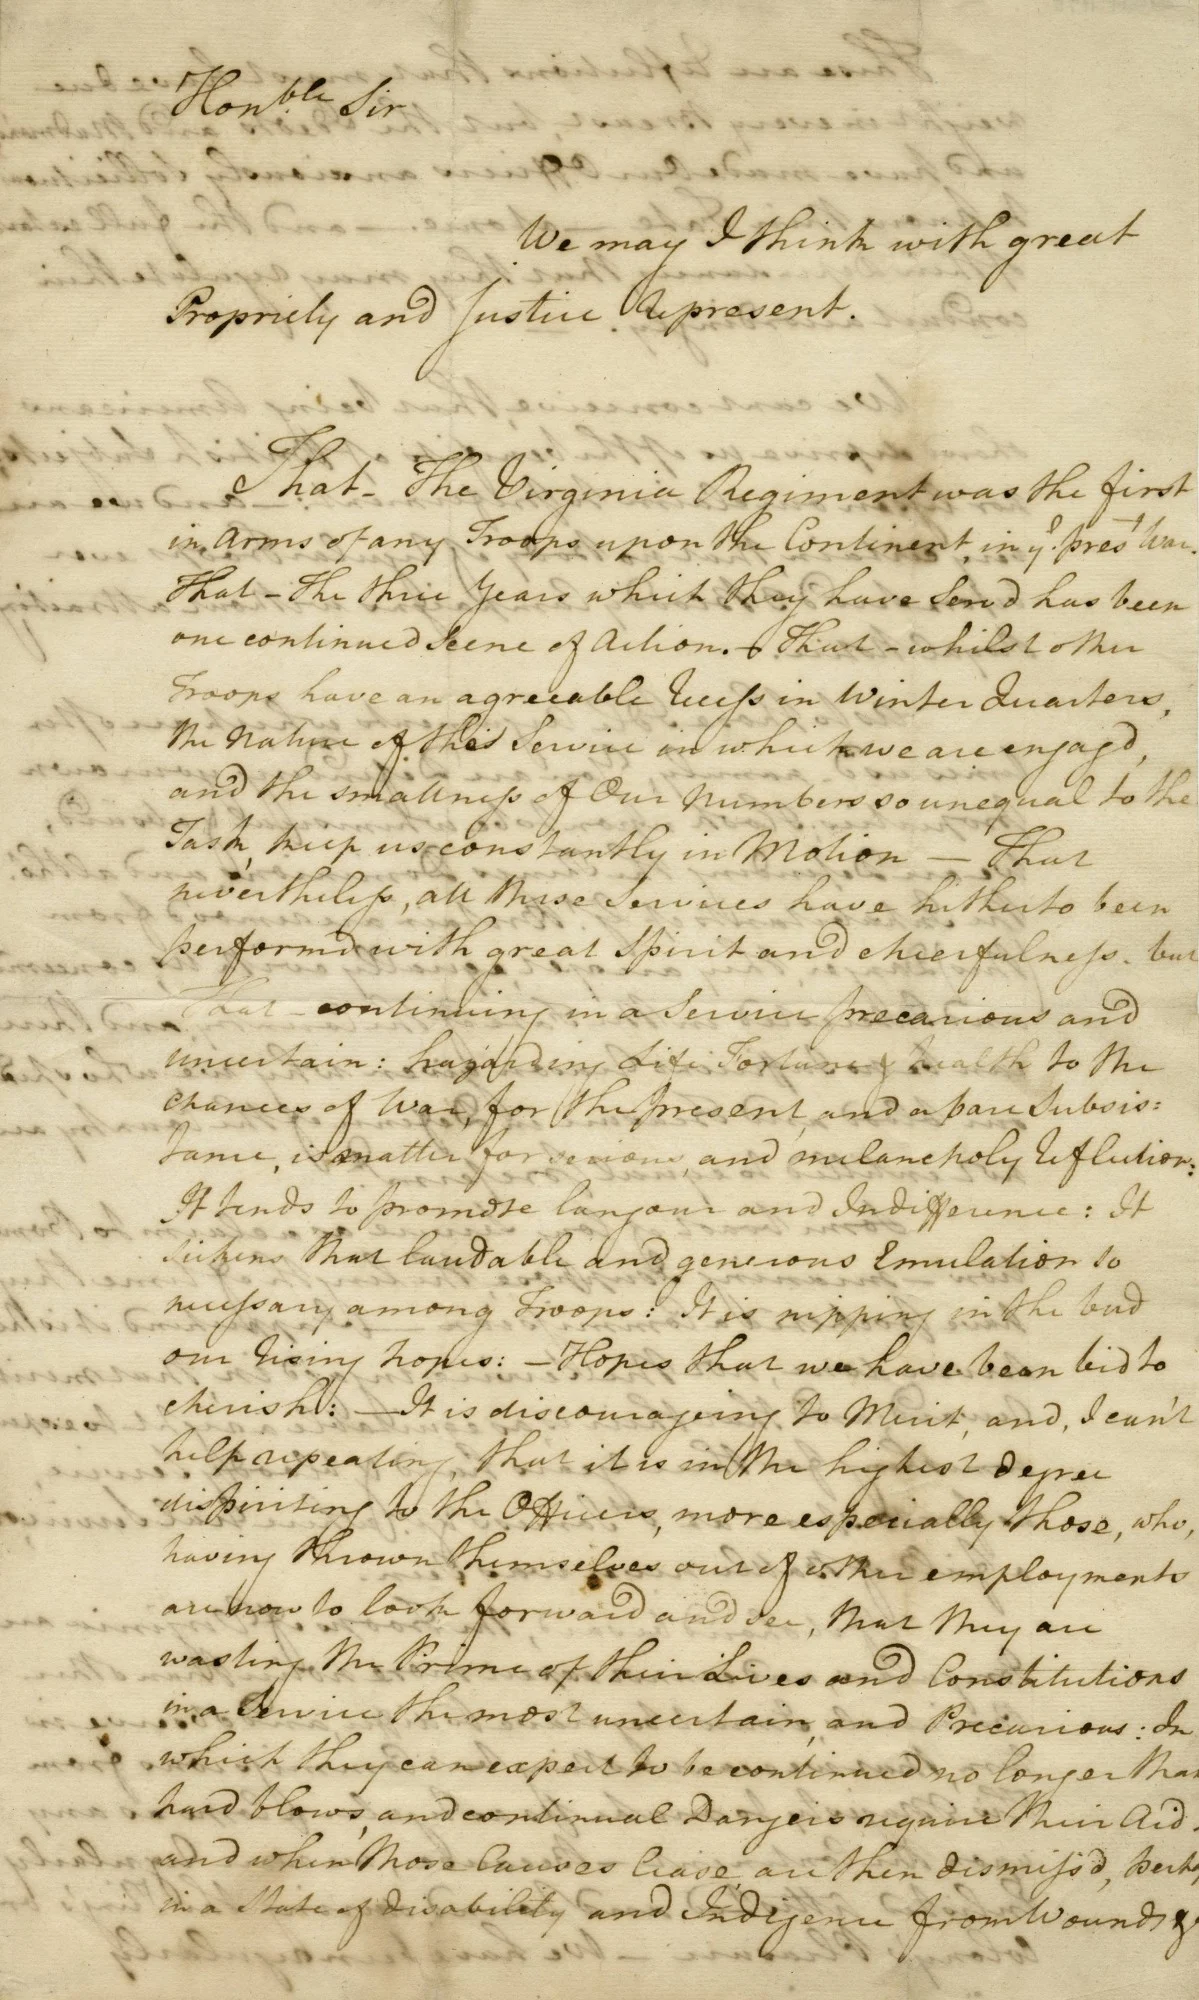 Hon.ble Sir
We may I think with great
Propriety and Justice Represent.
That – The Virginia Regiment was the first
in Arms of any Troops upon the Continent, in ye. prest. War.
That – The three Years which they have Serv'd has been
one continued Scene of Action. – That – whilst other
Troops have an agreeable Recess in Winter Quarters,
the Nature of the Service in which we are engag'd,
and the smallness of Our Numbers so unequal to the
Task, keep us constantly in Motion — That
nevertheless, all these Services have hitherto been
performd with great Spirit and cheerfulness. but
That – continuing in a Service precarious and
uncertain: hazarding Life Fortune & health to the
chances of War, for the present, and a bare Subsis:
tance, is matter for serious, and melancholy reflection:
It tends to promote langour and Indifference: It
sickens that laudable and generous Emulation so
necessary among Troops: It is nipping in the bud
our rising hopes: – Hopes that we have been bid to
cherish: – It is discourageing to Merit, and, I can't
help repeating, that it is in the highest degree
dispiriting to the Officers, more especially those, who,
having thrown themselves out of other employments
are now to look forward and see, that they are
wasting the Prime of their Lives and Constitutions
in a Service the most uncertain, and Precarious: In
which they can expect to be continued no longer than
hard blows, and continual Dangers require their Aid.
and when those Causes Cease, are then dismiss'd, perhap
in a State of disability and Indigence from Wounds &